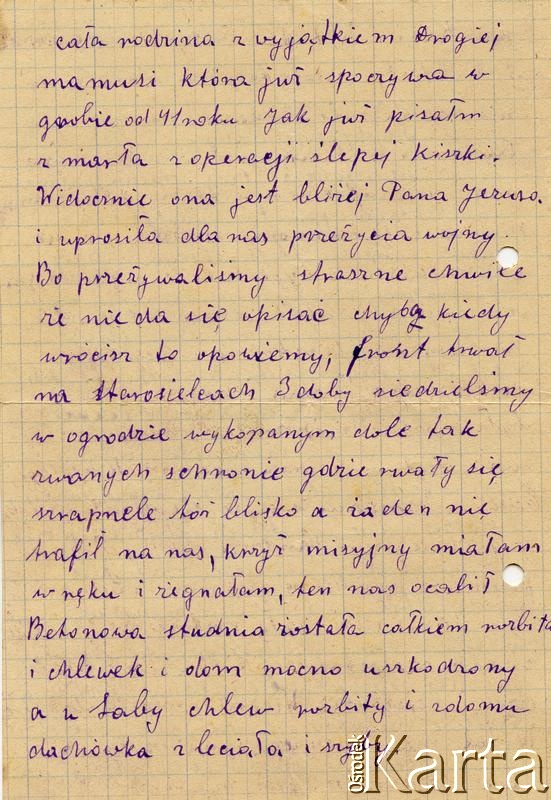 cała rodzina z wyjątkiem Drogiej
mamusi która już spoczywa w
grobie od 41 roku Jak już pisałm
z marła z operacji ślepej Kiszki.
Widocznie ona jest bliżej Pana Jezusa.
i uprosiła dla nas przeżycia wojny.
Bo przeżywaliśmy straszne chwile
że nie da się opisać chyba kiedy
wrócisz to opowiemy; front trwał
na Starosielcach 3 doby siedzieliśmy
w ogrodzie wykopanym dole tak
zwanych schronie gdzie rwały się
szrapnele tóż blisko a żaden nie
trafił na nas, krzyż misyjny miałam
w ręku i żegnałam, ten nas ocalił
Betonowa studnia została całkiem rozbita
i chlewek i dom mocno uszkodzony
a u Łaby chlew rozbity i zdomu
dachówka z leciała i szyby
Ośrodek
Karta